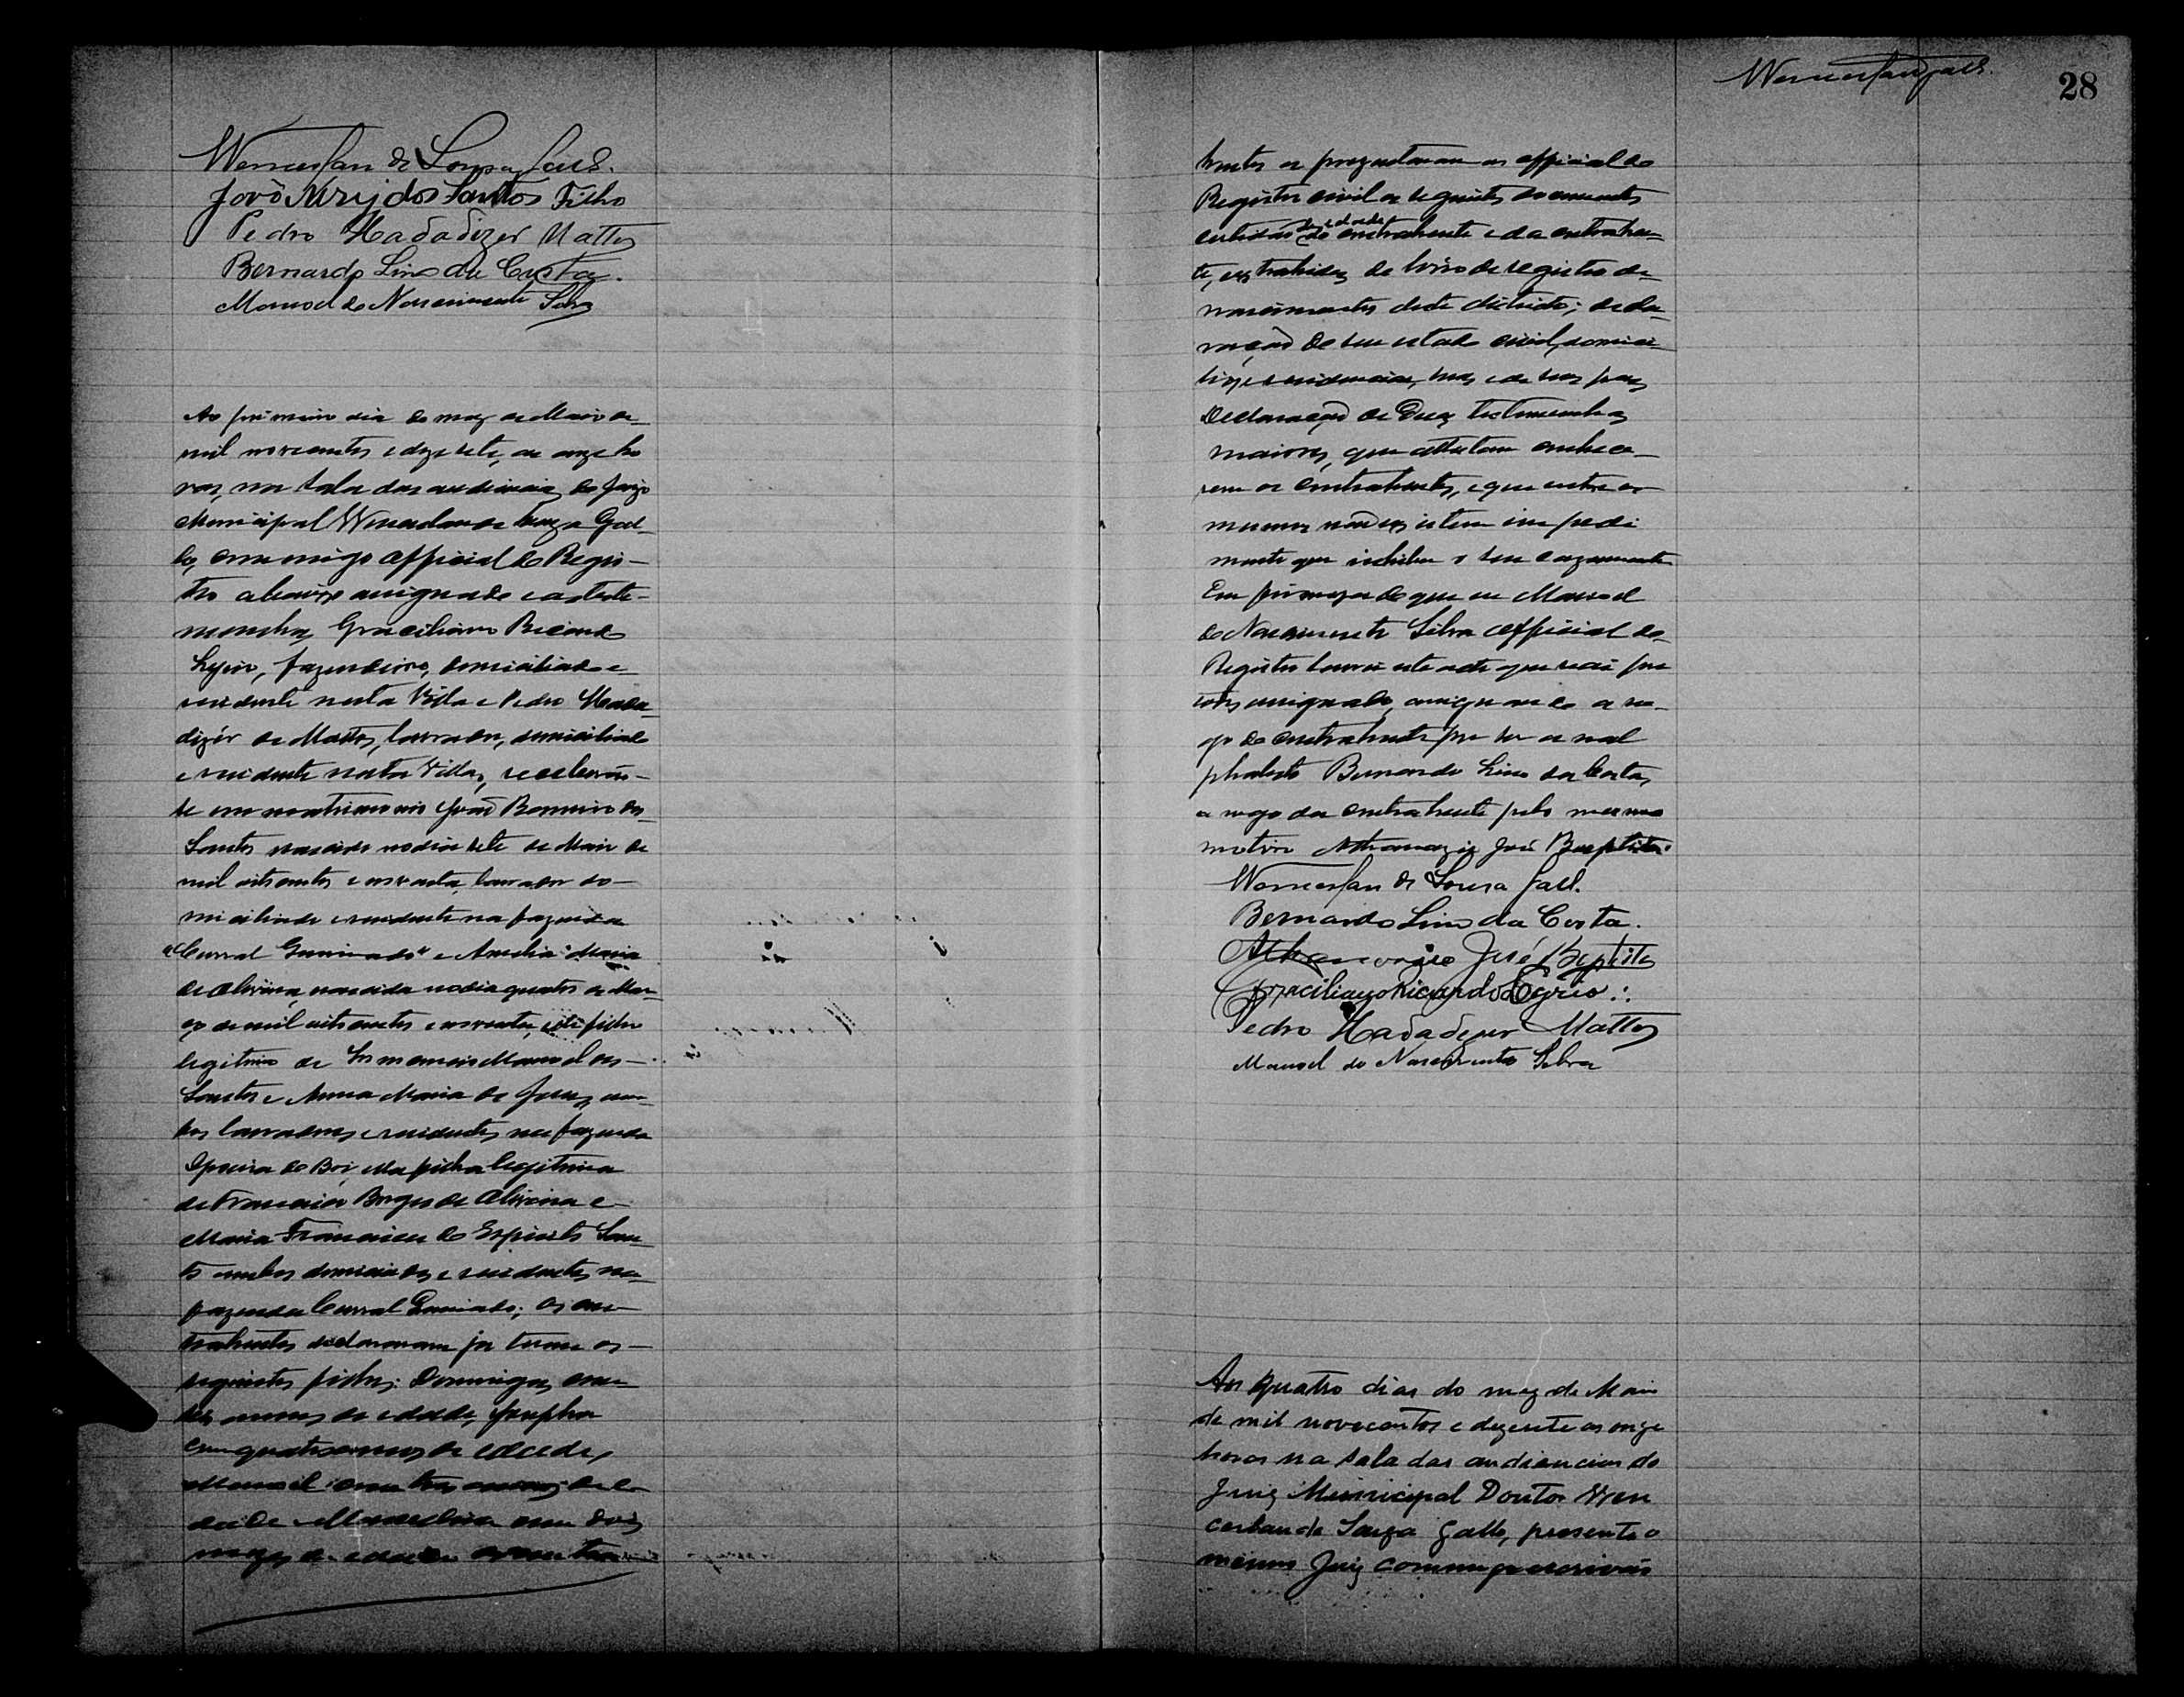 Wenceslau de Sousa Gall.
João Muiz dos Santos Filho
Pedro Hadadizer Mattos
Bernardo Lino da Costa.
Manoel do Nascimento Silva
Ao primeiro dia do mez de Maio de
mil novecentos e dezesete, as onze ho
ras, na sala das audiencias do Juizo
Municipal Wenceslau de Souza Gal-
lo, commigo official do Regis-
tro abaixo assignado e as teste-
munhas Graciliano Ricardo
Legrio, fazendeiro, domiciliado e
residente nesta Villa e Pedro Hada-
dizér de Mattos, lavrador, domiciliado
e residente nesta Villa, receberão-
se em matrimonio João Romeiro dos
Santos nascido no dia sete de Maio de
mil oitocentos e noventa, lavrador do-
miciliado e residente na fazenda
"Curral " e Amelia Maria
de Oliveira, nascida no dia quatro de Mar-
ço de mil oitocentos e noventa, elle filho
legitimo de Manoel dos
Santos e Anna Maria de Jesus, am-
bos lavradores e residentes na fazenda
do Boi, ella filha legitima
de Francisco Borges de Oliveira e
Maria Francisca do Espirito San-
to ambos domiciliados e residentes na
fazenda Curral ; os con-
trahentes declararam ja terem os
seguintes filhos: Domingas, com
seis annos de edade, Josepha
com quatro annos de edade,
Manoel com tres annos de e-
dade e Marcelina com dois
mezes de edade. Os contra
Wenceslau Gall.
28
hentes apresentaram ao official do
Registro civil os seguintes documentos
certidão de edade do contrahente e da contrahen-
te, extrahidas do livro de registro de
nascimentos deste districto; decla-
ração de seu estado civil, domici-
lio e residencia, seus e de seus paes,
Declaração de duas testemunhas
maiores, que attestam conhece-
rem os contrahentes, e que entre os
mesmos não existem impedi
mento que inhiba o seu cazamento
Em firmeza do que eu Manoel
do Nascimento Silva official do
Registro lavrei este acto que vai por
todos assignado, assignando a ro-
go do contrahente por ser anal
phabeto Bernardo Lino da Costa,
a rogo da contrahente pelo mesmo
motivo Athanazio José Baptista.
Wenceslau de Sousa Gall.
Bernardo Lino da Costa.
Athanazio José Baptista
Graciliano Ricardo Legrio.:
Pedro Hadadizer Mattos
Manoel do Nascimento Silva
Aos quatro dias do mez de Maio
de mil novecentos e dezesete as onze
horas na sala das audiencias do
Juiz Municipal Doutor Wen
ceslau de Souza Gallo, presente o
mesmo Juiz commigo escrivão